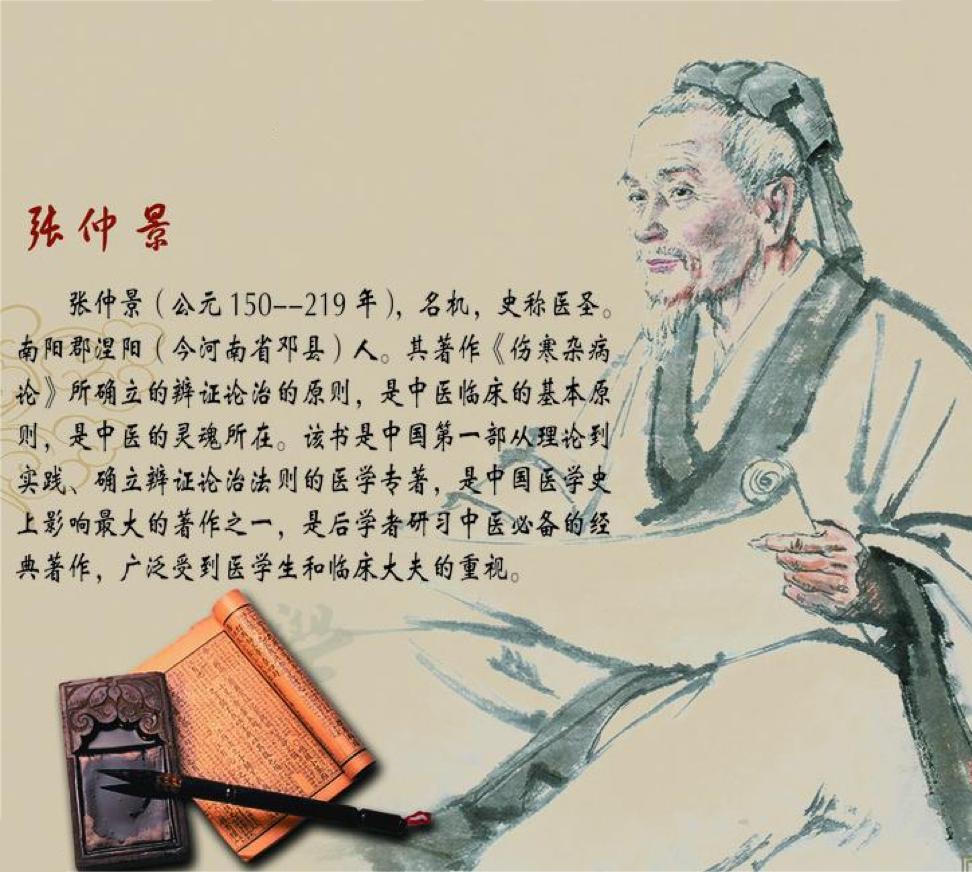 张仲景
张仲景（公元150--219年），名机，史称医圣。
南阳郡涅阳（今河南省邓县）人。其著作《伤寒杂病
论》所确立的辨证论治的原则，是中医临床的基本原
则，是中医的灵魂所在。该书是中国第一部从理论到
实践、确立辨证论治法则的医学专著，是中国医学史
上影响最大的著作之一，是后学者研习中医必备的经
典著作，广泛受到医学生和临床大夫的重视。